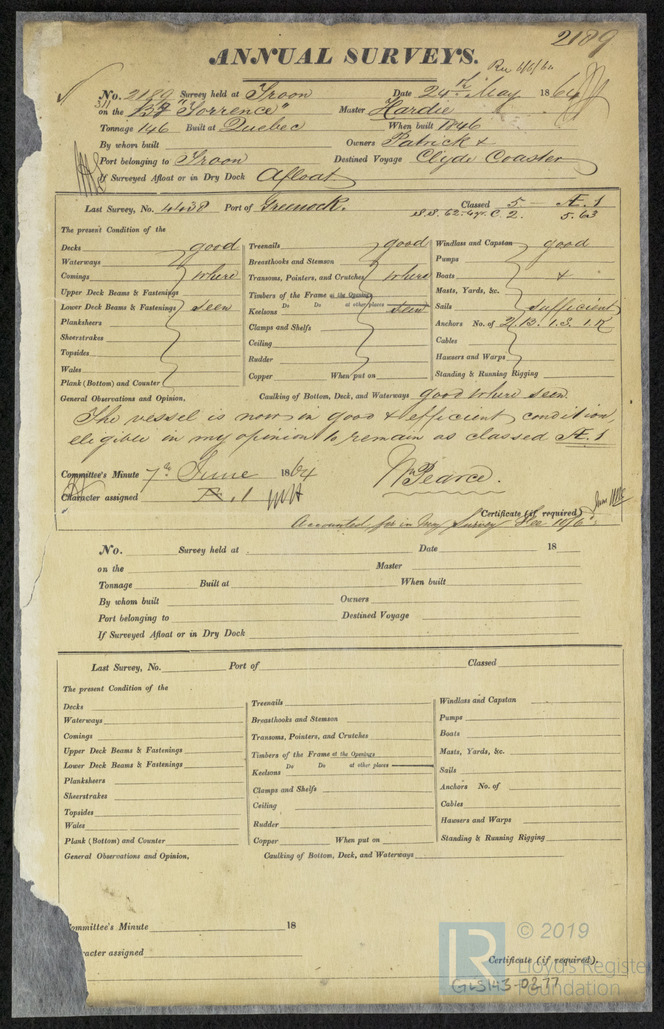 2189
ANNUAL SURVEYS.
No. 2189 Survey held at Troon Date 24th May 1864
on the "Torrence" Master Hardie
Tonnage 146 Built at Quebec When built 1846
By whom built Owners Patrick &
Port belonging to Troon Destined Voyage Clyde Coaster
If Surveyed Afloat or in Dry Dock Afloat
Last Survey, No. 4438 Port of Greenock. Classed 5 Æ.1
S.S. 62-4yr. C. 2. 5.63
The present Condition of the
Decks good Treenails good Windlass and Capstan good
Waterways Breasthooks and Stemson Pumps
Comings where Transoms, Pointers, and Crutches where Boats &
Upper Deck Beams & Fastenings Timbers of the Frame at the Openings Masts, Yards, &c.
Do Do at other places
Lower Deck Beams & Fastenings seen Keelsons seen Sails sufficient
Planksheers Clamps and Shelfs Anchors No. of 2/B. 1.S. 1.K
Sheerstrakes Ceiling Cables
Topsides Rudder Hawsers and Warps
Wales Copper When put on Standing & Running Rigging
Plank (Bottom) and Counter
General Observations and Opinion, Caulking of Bottom, Deck, and Waterways good where seen
The vessel is now in good & efficient condition,
eligible in my opinion to remain as classed Æ.1
Committee's Minute 7th June 1864 Wm Pearce.
Character assigned Æ.1
Certificate (if required)
Accounted for in my Survey
No. Survey held at Date 18
on the Master
Tonnage Built at When built
By whom built Owners
Port belonging to Destined Voyage
If Surveyed Afloat or in Dry Dock
Last Survey, No. Port of Classed
The present Condition of the
Decks Treenails Windlass and Capstan
Waterways Breasthooks and Stemson Pumps
Comings Transoms, Pointers, and Crutches Boats
Upper Deck Beams & Fastenings Timbers of the Frame at the Openings Masts, Yards, &c.
Do Do at other places
Lower Deck Beams & Fastenings Keelsons Sails
Planksheers Clamps and Shelfs Anchors No. of
Sheerstrakes Ceiling Cables
Topsides Rudder Hawsers and Warps
Wales Copper When put on Standing & Running Rigging
Plank (Bottom) and Counter
General Observations and Opinion, Caulking of Bottom, Deck, and Waterways
ommittee's Minute 18
racter assigned
Certificate (if required).
LR © 2019
Lloyd's Register
Foundation
GLS143-0277